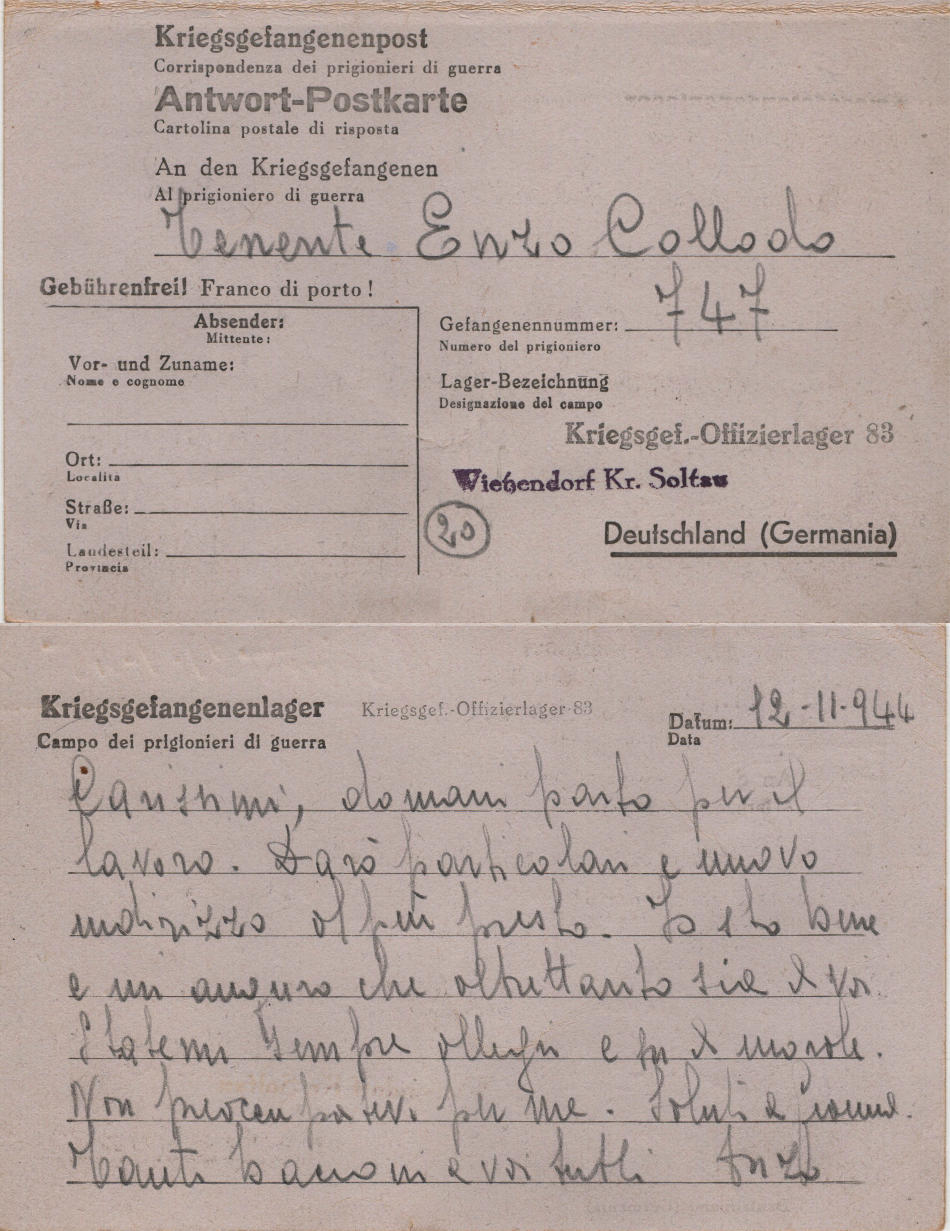 Kriegsgefangenenpost
Corrispondenza dei prigionieri di guerra
Antwort-Postkarte
Cartolina postale di risposta
An den Kriegsgefangenen
Al prigioniero di guerra
Tenente Enzo Collodo
Gebührenfrei! Franco di porto!
Absender:
Mittente:
Vor- und Zuname:
Nome e cognome
Ort:
Localita
Straße:
Via
Landesteil:
Provincia
Gefangenennummer: 747
Numero del prigioniero
Lager-Bezeichnung
Designazione del campo
Kriegsgef.-Offizierlager 83
Wietzendorf Kr. Soltau
20
Deutschland (Germania)
Kriegsgefangenenlager Kriegsgef.-Offizierlager 83
Campo dei prigionieri di guerra
Datum: 12-11-944
Data
Carissimi, domani parto per il
lavoro. Darò particolari e nuovo
indirizzo al più presto. Io sto bene
e mi auguro che altrettanto sia di voi.
Statemi sempre allegri e su di morale.
Non preoccupatevi per me. Saluti a
Tanti bacioni a voi tutti Enzo